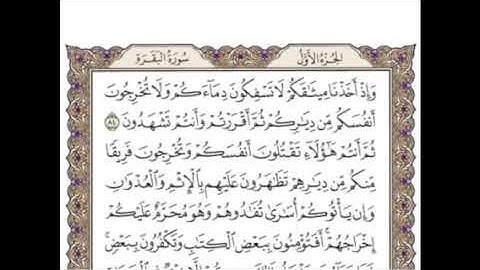 الجُزْءُ الأَوَّلُ سُورَةُ البَقَرَةِ
وَإِذْ أَخَذْنَا مِيثَٰقَكُمْ لَا تَسْفِكُونَ دِمَآءَكُمْ وَلَا تُخْرِجُونَ
أَنفُسَكُم مِّن دِيَٰرِكُمْ ثُمَّ أَقْرَرْتُمْ وَأَنتُمْ تَشْهَدُونَ ٨٤
ثُمَّ أَنتُمْ هَٰٓؤُلَآءِ تَقْتُلُونَ أَنفُسَكُمْ وَتُخْرِجُونَ فَرِيقًا
مِّنكُم مِّن دِيَٰرِهِمْ تَظَٰهَرُونَ عَلَيْهِم بِٱلْإِثْمِ وَٱلْعُدْوَٰنِ
وَإِن يَأْتُوكُمْ أُسَٰرَىٰ تُفَٰدُوهُمْ وَهُوَ مُحَرَّمٌ عَلَيْكُمْ
إِخْرَاجُهُمْ ۚ أَفَتُؤْمِنُونَ بِبَعْضِ ٱلْكِتَٰبِ وَتَكْفُرُونَ بِبَعْضٍ ۚ